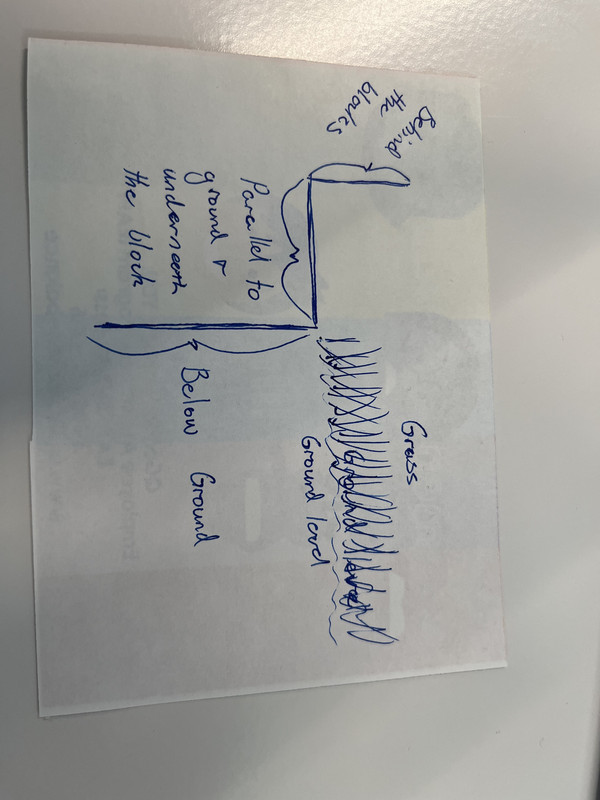 Behind
the
blocks
Parallel to
ground &
underneath
the block
Grass
Ground level
Below Ground